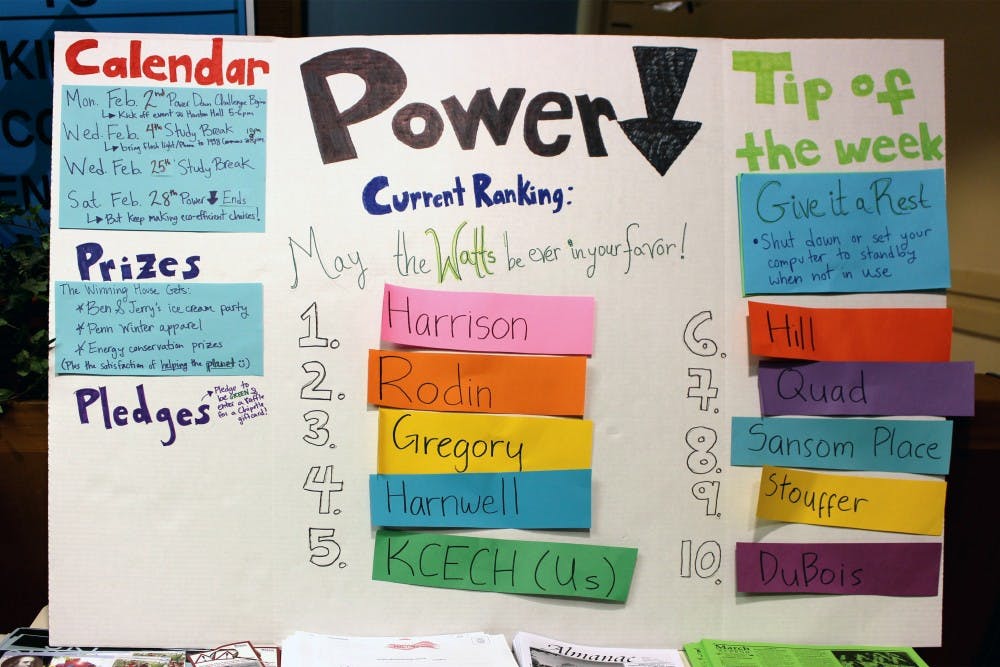 Calendar
Mon. Feb. 2nd Power Down Challenge Begins
Kick off event @ Houston Hall 5-6pm
Wed. Feb. 4th Study Break
bring flashlight/Phone to 1938
Wed. Feb. 25th Study Break
Sat. Feb. 28th Power Ends
But Keep making eco-efficient choices!
Prizes
The Winning House Gets:
* Ben & Jerry's ice cream party
* Penn Winter apparel
* Energy conservation prizes
(Plus the satisfaction of helping the planet :))
Pledges
Pledge to
be GREEN &
enter a raffle
for a Chipotle
giftcard!
Power
Current Ranking:
May the Watts be ever in your favor!
1. Harrison
2. Rodin
3. Gregory
4. Harnwell
5. KCECH (Us)
6. Hill
7. Quad
8. Sansom Place
9. Stouffer
10. DuBois
Tip of
the week
Give it a Rest
• Shut down or set your
computer to standby
when not in use
Almanac
March